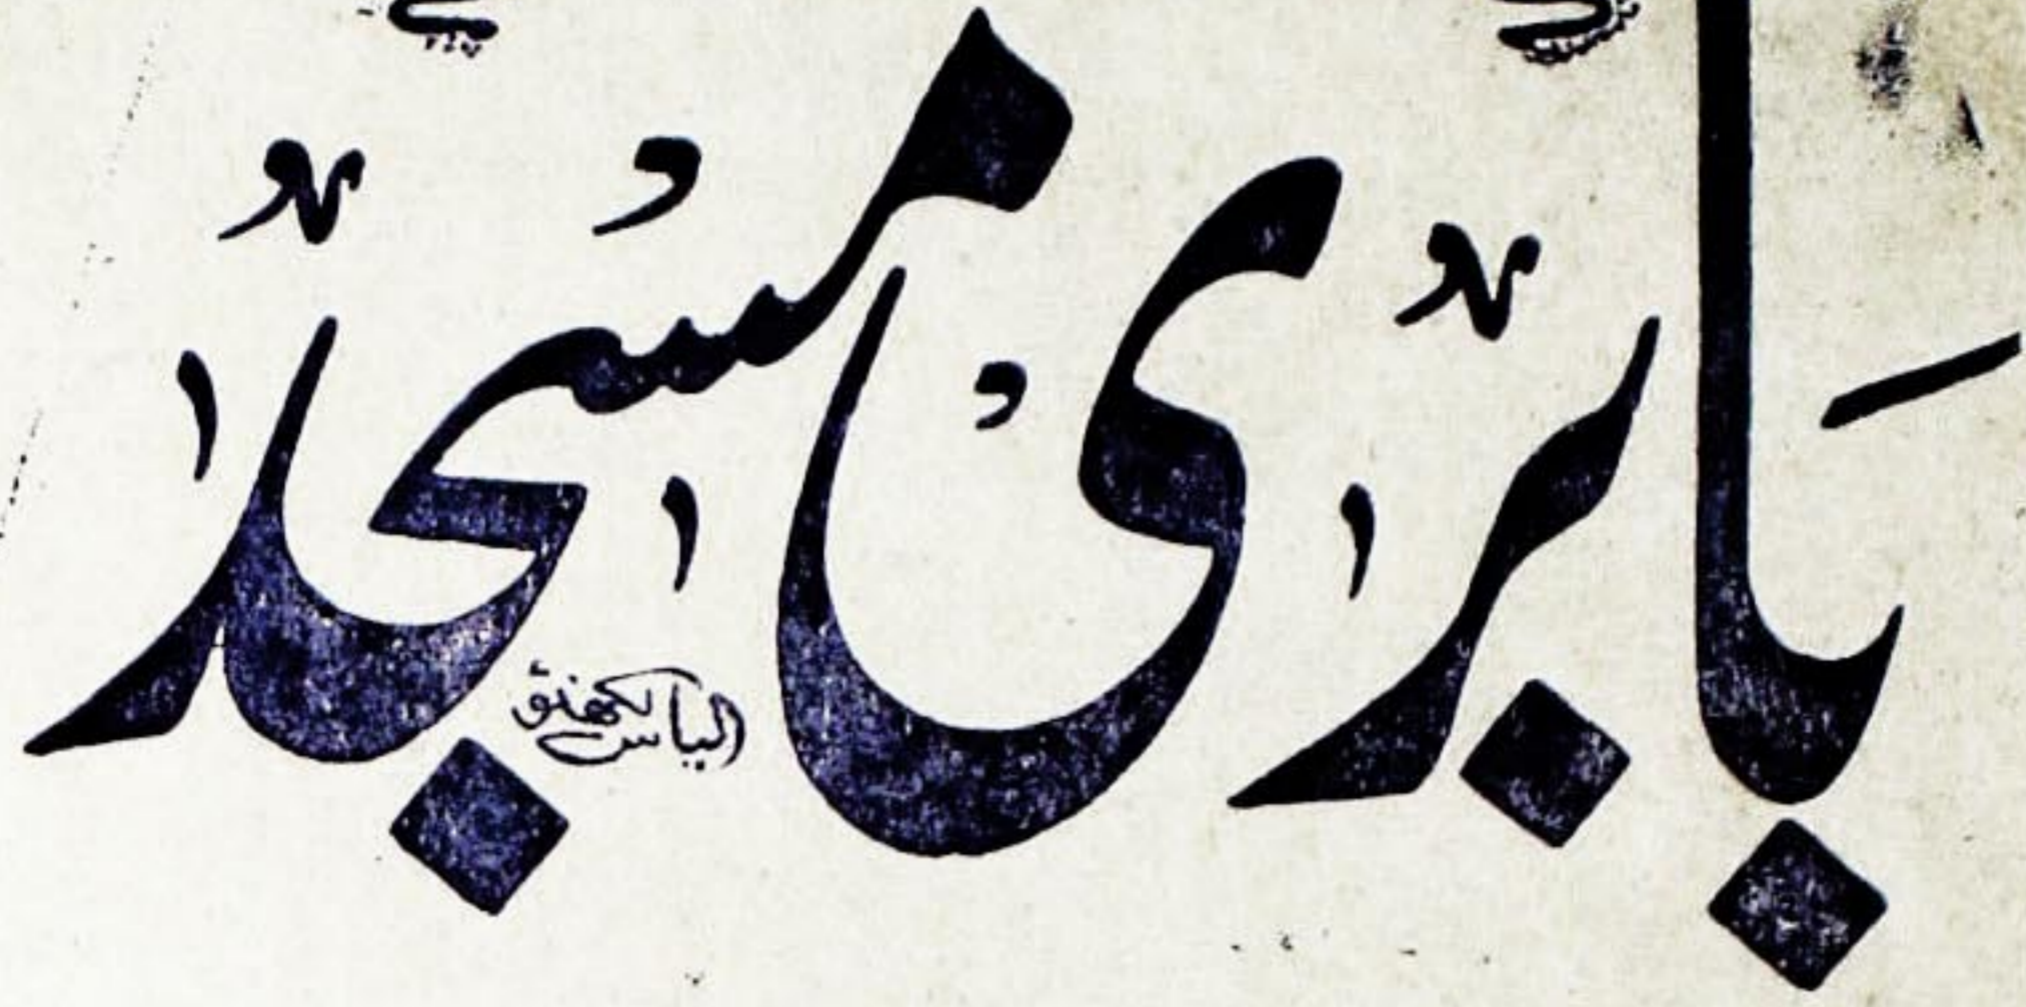 بابری مسجد
الیاس لکھنؤ